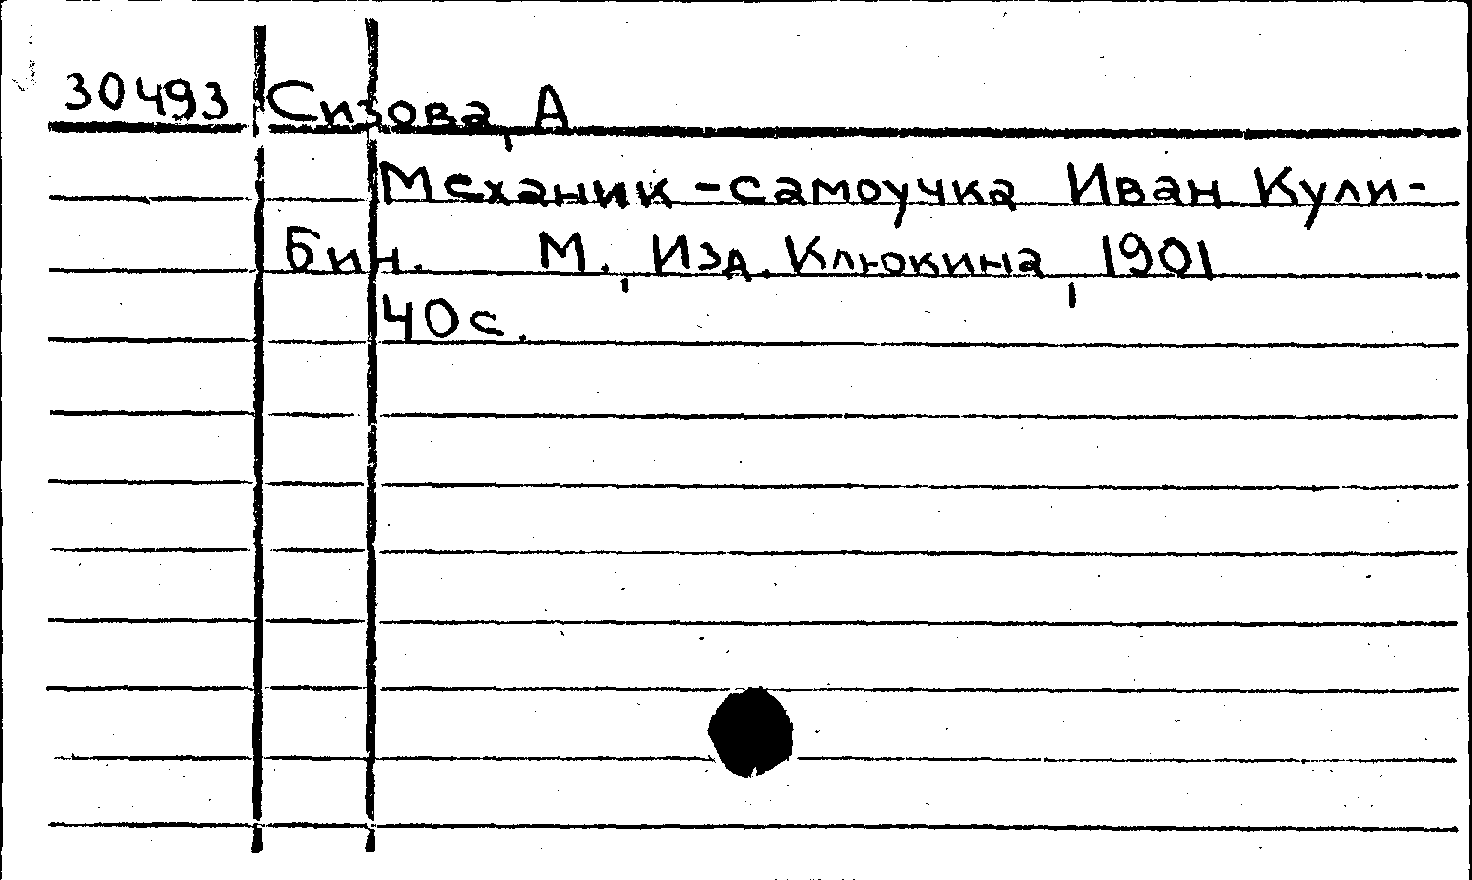 30493 Сизова, А
Механик-самоучка Иван Кули-
бин. М., Изд. Клюкина, 1901
40 с.